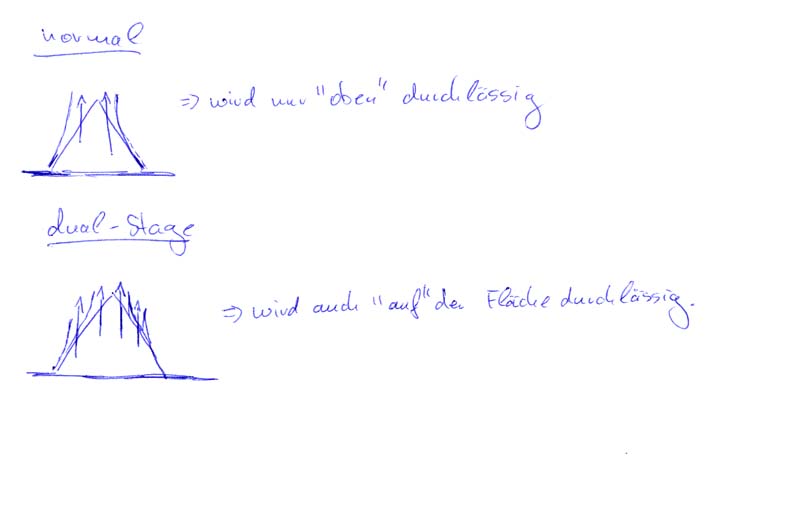 normal
=> wird nur "oben" durchlässig
dual-Stage
=> wird auch "auf" der Fläche durchlässig.